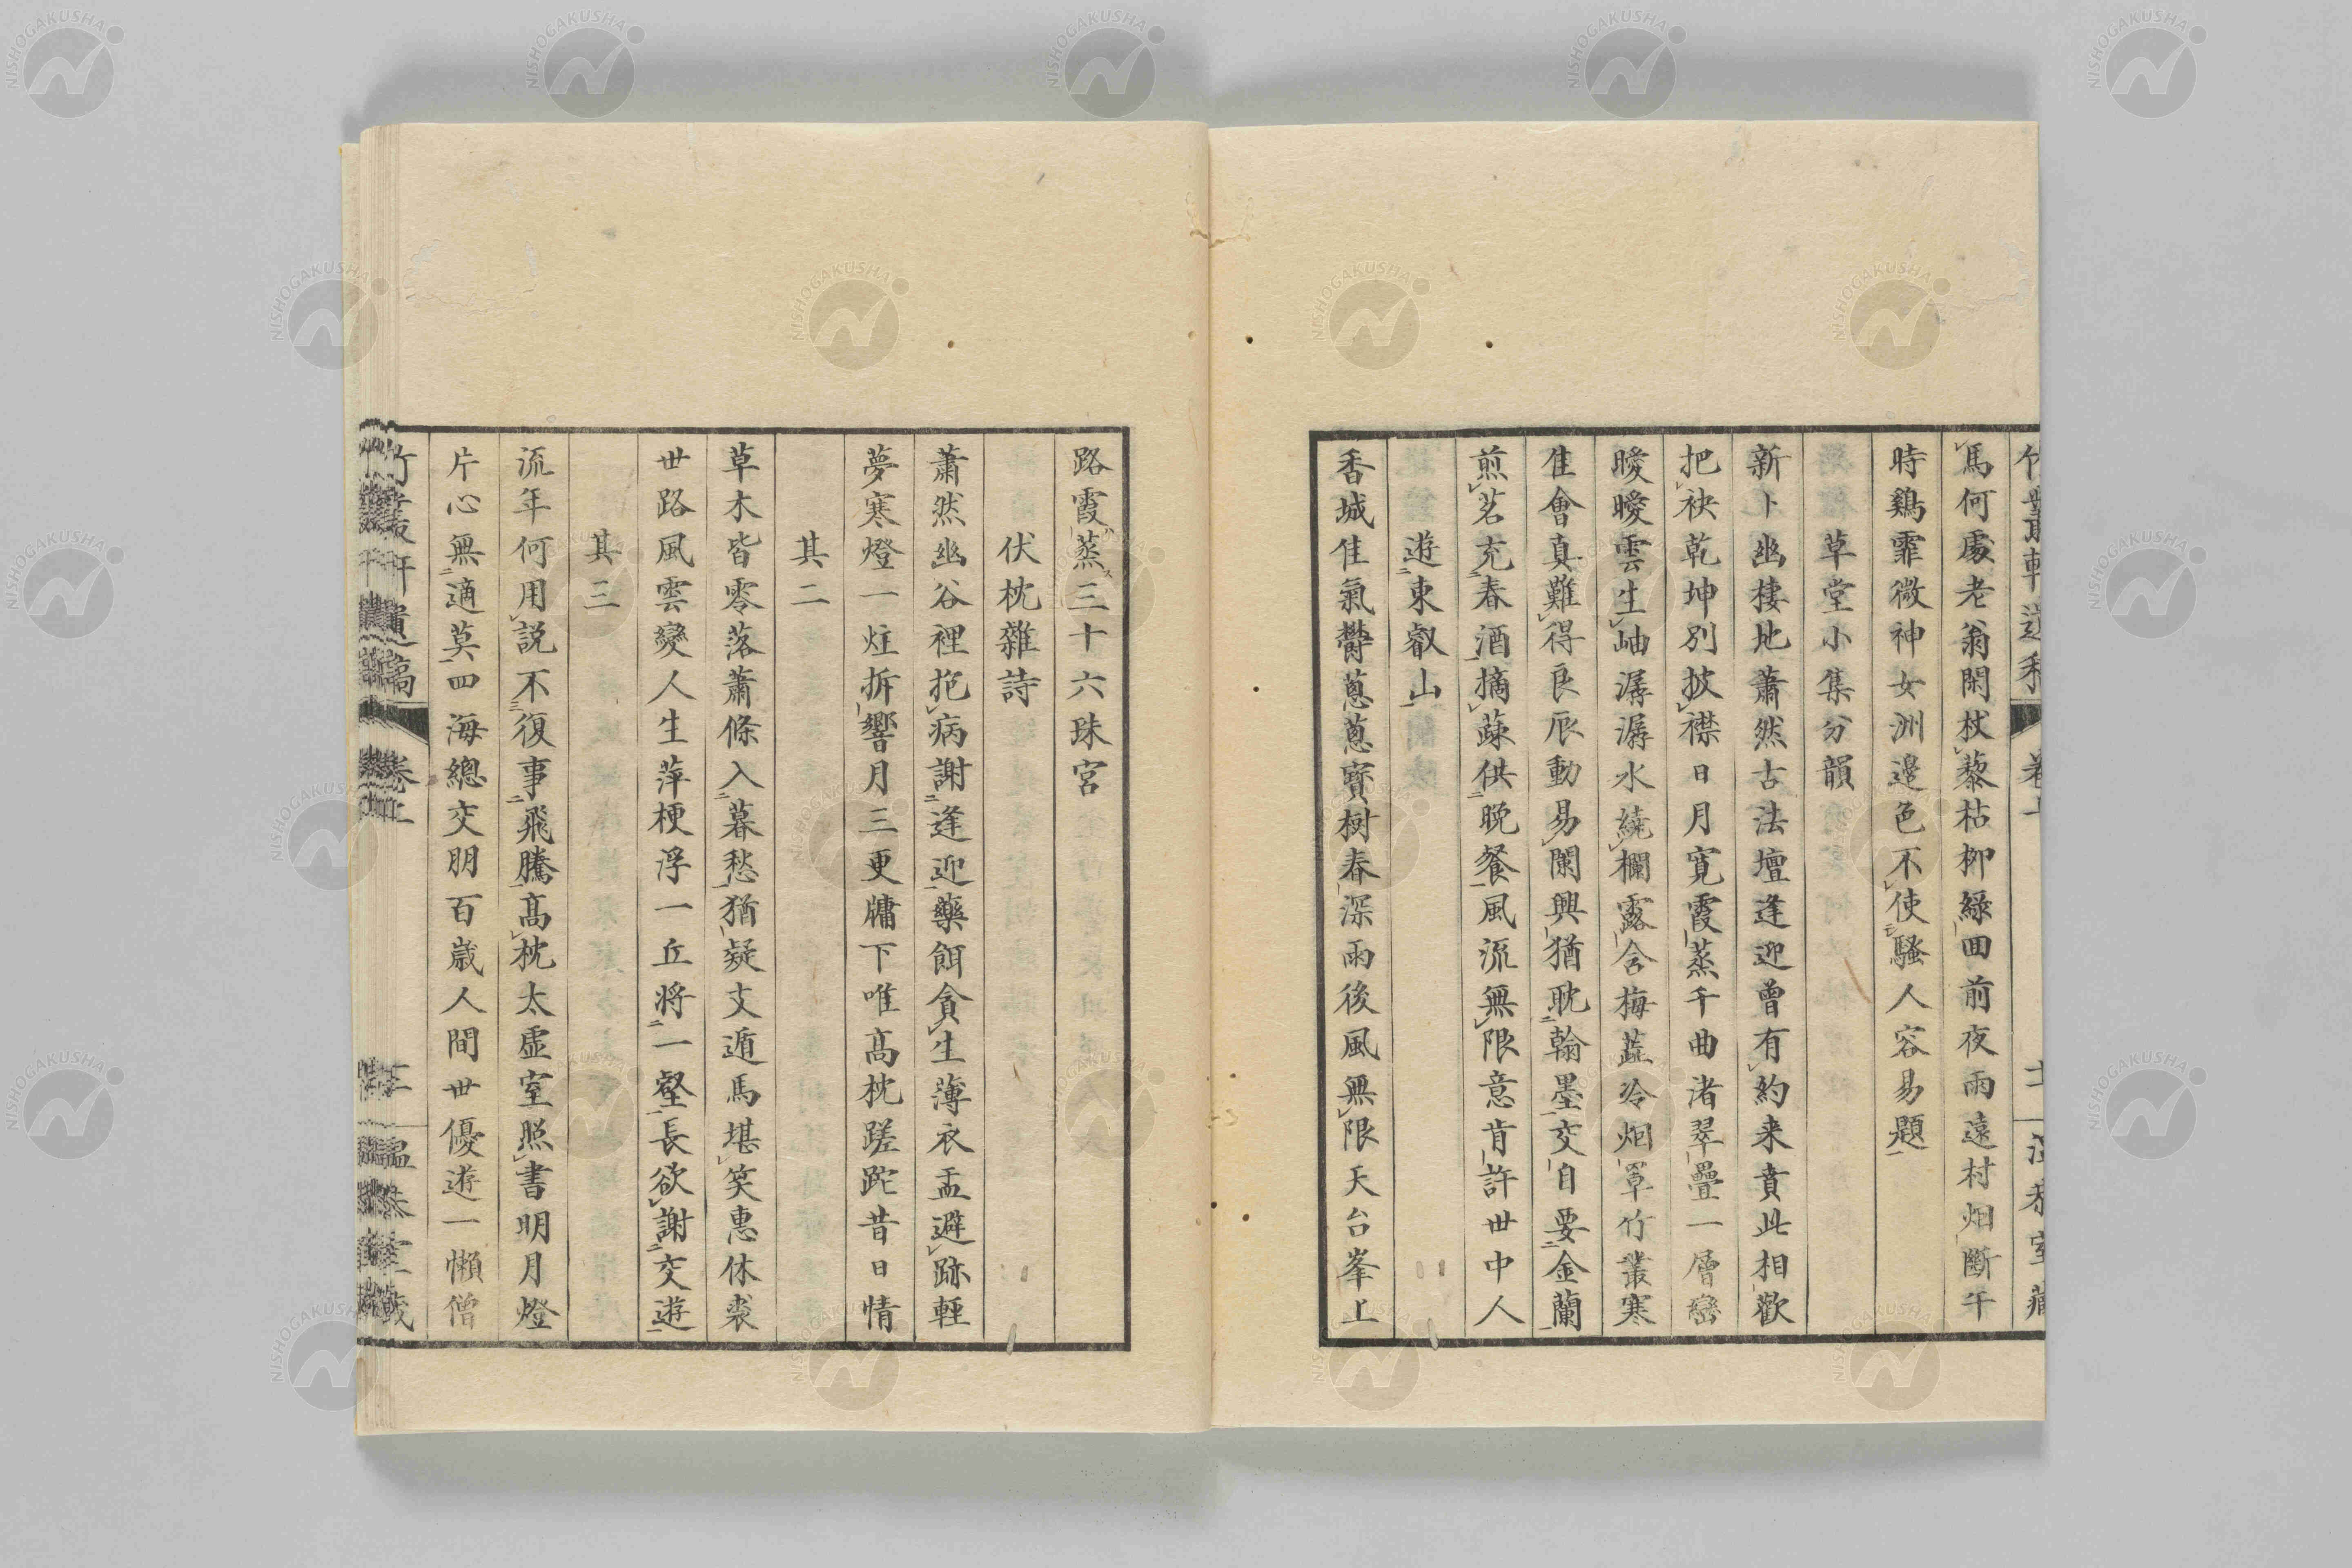 馬何處老翁閑杖藜枯柳綠回前夜雨遠村烟斷午
時鷄霏微神女洲邊色不使騷人容易題
草堂小集分韻
新卜幽棲地蕭然古法壇逢迎曾有約来賁此相歡
把袂乾坤別披襟日月寬霞蒸千曲渚翠疊一層巒
曖曖雲生岫潺潺水繞欄露含梅蕋冷烟罩竹叢寒
佳會真難得良辰動易闌興猶耽翰墨交自要金蘭
煎茗充春酒摘蔬供晩餐風流無限意肯許世中人
遊東叡山
香城佳氣欝蔥蔥寳樹春深雨後風無限天台峯上
路霞蒸三十六珠宮
伏枕雜詩
蕭然幽谷裡抱病謝逢迎藥餌貪生薄衣盂避跡輕
夢寒燈一炷拆響月三更牗下唯高枕蹉跎昔日情
其二
草木皆零落蕭條入暮愁猶疑支遁馬堪笑惠休裘
世路風雲變人生萍梗浮一丘将一壑長欲謝交遊
其三
流年何用説不復事飛騰高枕太虛室照書明月燈
片心無適莫四海總交朋百歳人間世優遊一懶僧